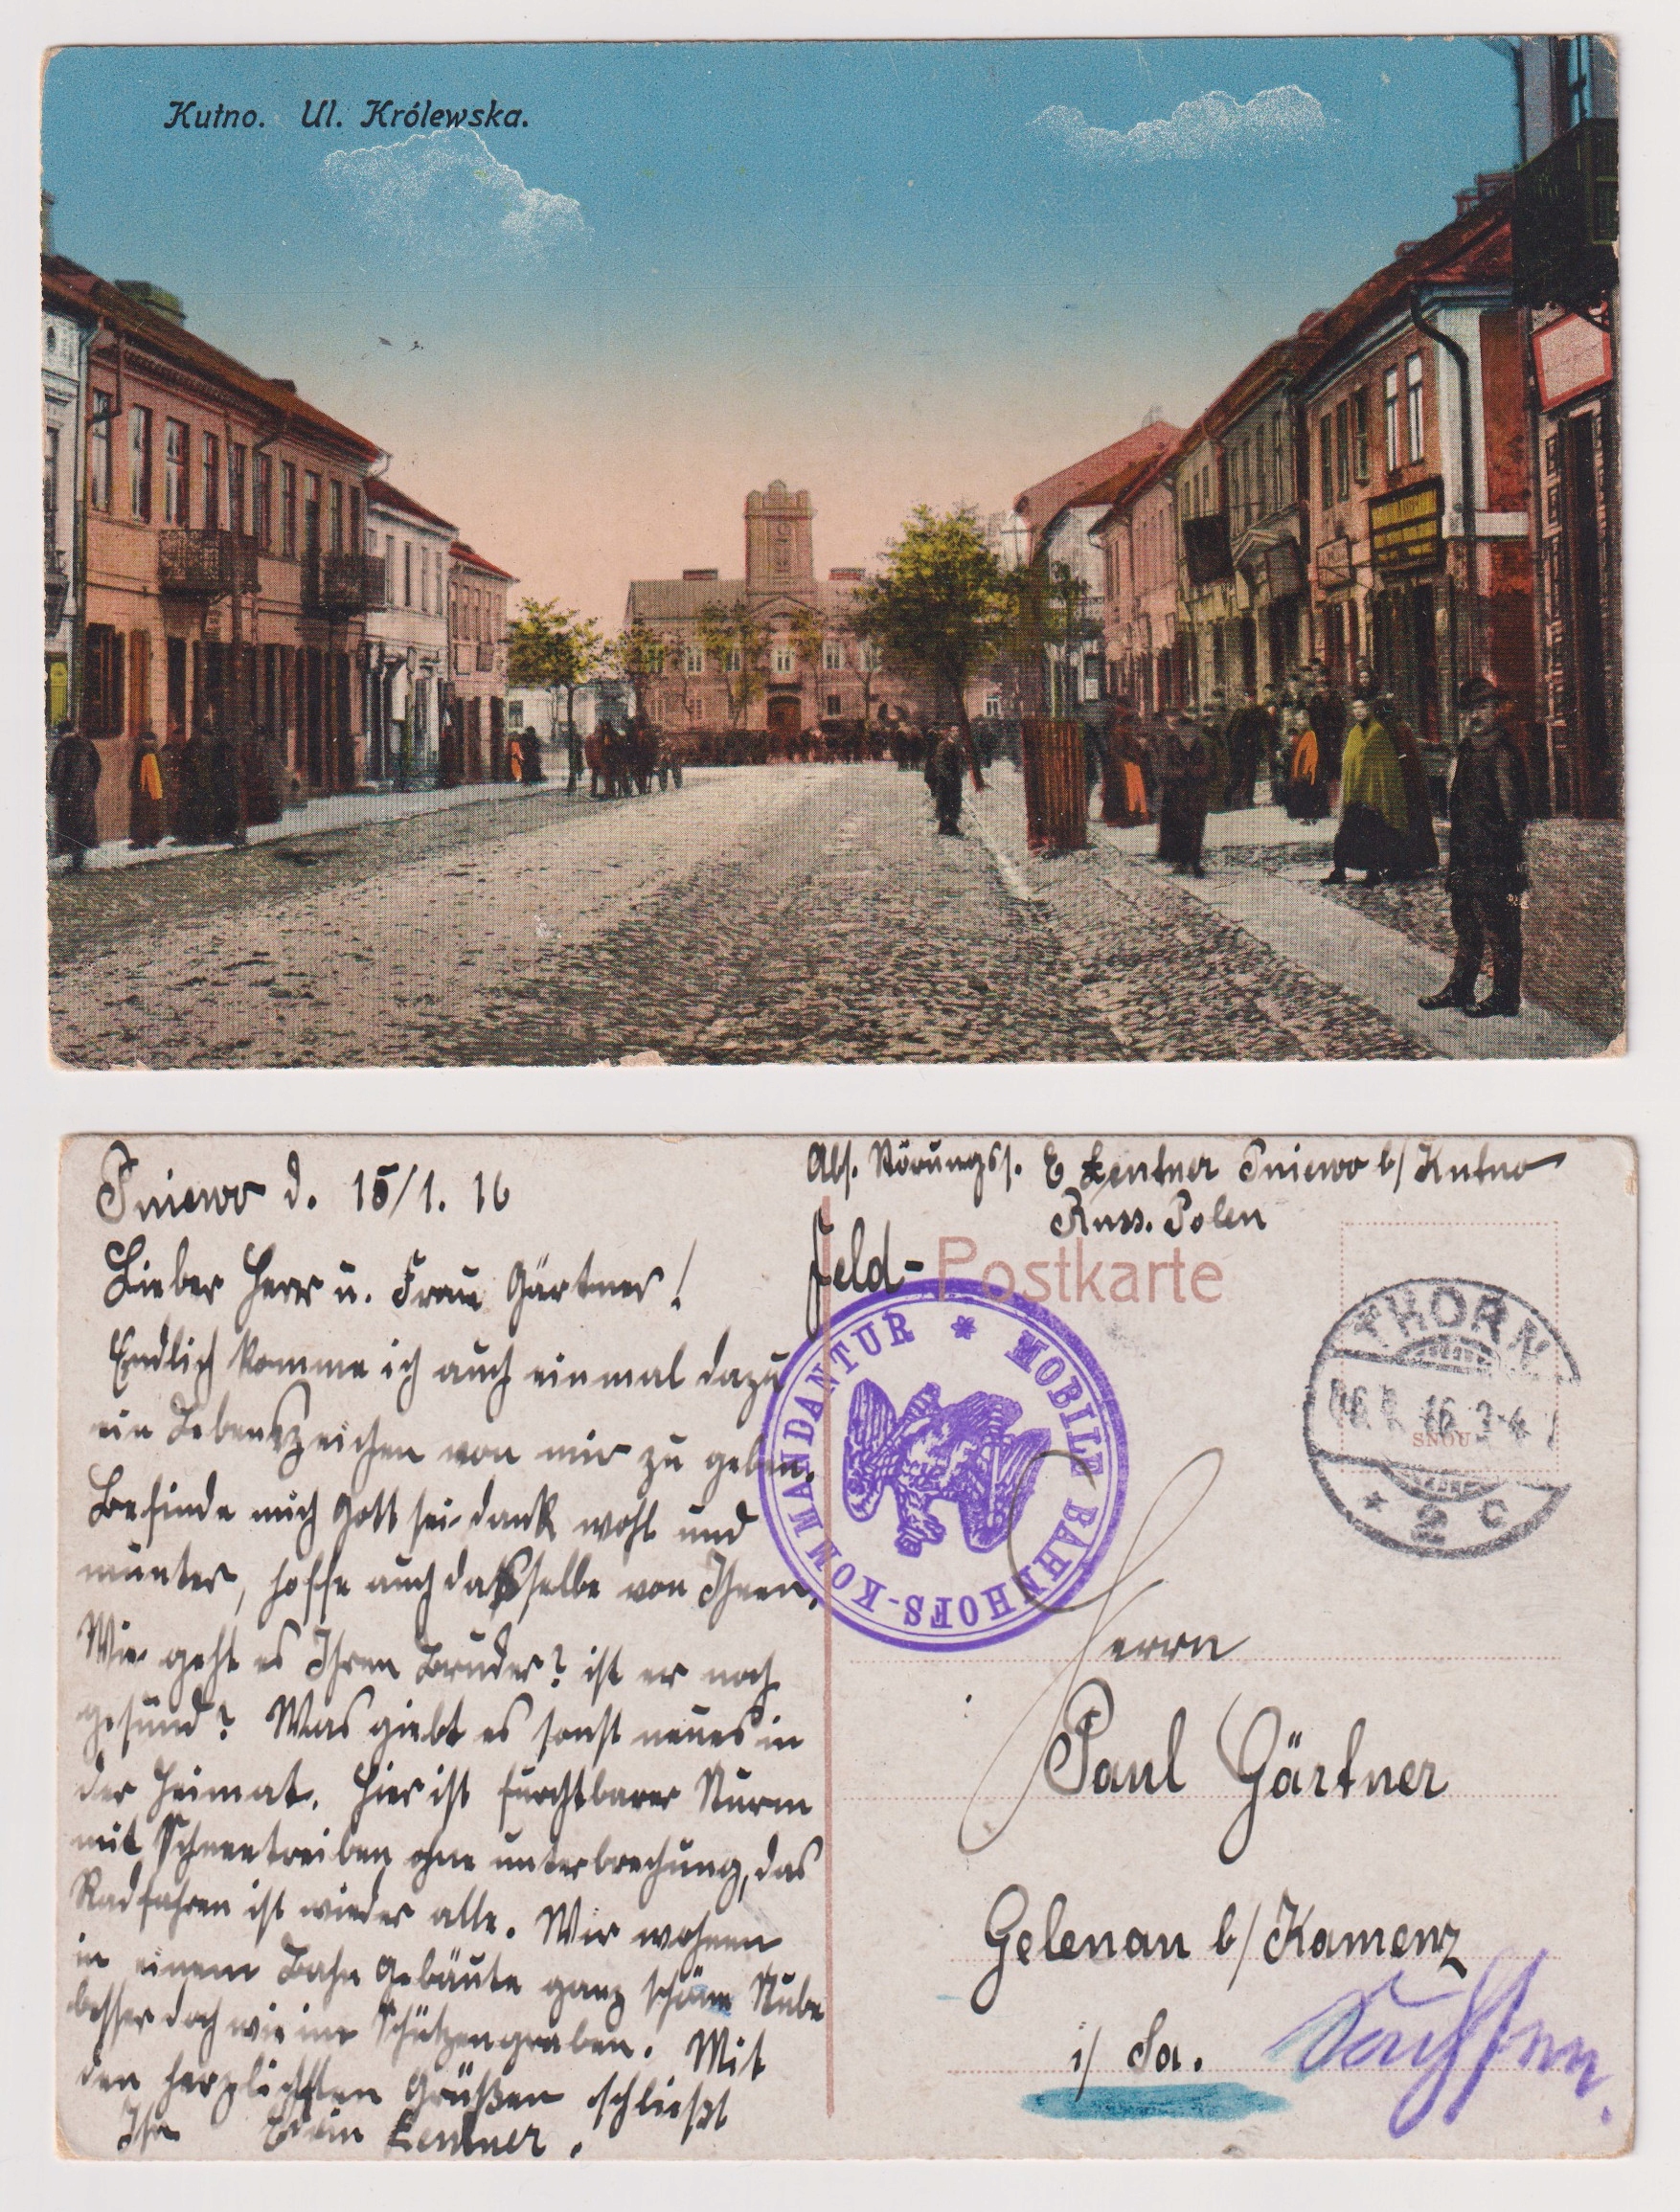 Kutno. Ul. Królewska.
Pniewo d. 15/1. 16
Lieber Herr u. Frau Gärtner!
Endlich komme ich auch einmal dazu
ein Lebenszeichen von mir zu geben.
Befinde mich Gott sei dank wohl und
munter, hoffe auch dasselbe von Ihnen.
Wie geht es Ihren Bruder? ist er noch
gesund? Was giebt es sonst neues in
der Heimat. Hier ist furchtbarer Sturm
mit Schneetreiben ohne unterbrechung, das
Radfahren ist wieder alle. Wir wohnen
in einem Bahn Gebäute ganz schöne Stube
besser doch wie im Schützengraben. Mit
den herzlichsten Grüßen schließt
Ihr Erwin Lentner.
Abs. Störungss. E Lentner Pniewo b/Kutno
Russ. Polen
Feld-Postkarte
MOBILE BAHNHOFS-KOMMANDANTUR
THORN
16.1.16. 3-4
* 2 c
Herrn
Paul Gärtner
Gelenau b/Kamenz
i/ Sa.
Sachsen.